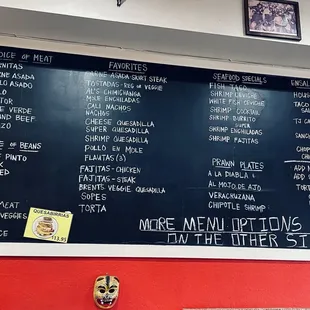 OICE OF MEAT
RNITAS
ASADA
ASADA
TOR
E VERDE
UND BEEF
ZO
E OF BEANS
PINTO
MEAT
VEGGIES
CE
FAVORITES
CARNE ASADA SKIRT STEAK
TOSTADAS-REG OR VEGGIE
AL'S CHIMICHANGA
MOLE ENCHILADAS
CALI NACHOS
NACHOS
CHEESE QUESADILLA
SUPER QUESADILLA
POLLO EN MOLE
FLAUTAS (3)
FAJITAS-CHICKEN
FAJITAS-STEAK
BRENTS VEGGIE QUESADILLA
SOPES
TORTA
QUESABIRRIAS
SEAFOOD SPECIALS
FISH TACO
WHITE FISH CEVICHE
SHRIMP CEVICHE
SHRIMP COCKTAIL
SHRIMP BURRITO
SUPER
SHRIMP ENCHILADAS
SHRIMP FAJITAS
PRAWN PLATES
A LA DIABLA
AL MOJO DE AJO
VERACRUZANA
CHIPOTLE SHRIMP
ENSAL
HOUS
TACO
TJ CA
CHIP
ADD M
ADD
TORT
MORE MENU OPTIONS
ON THE OTHER SI